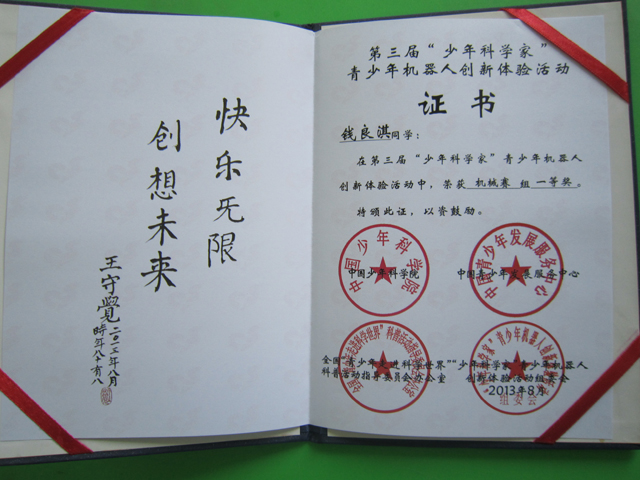 快乐无限
创想未来
王守覺
二〇一三年八月
時年八十有八
第三届“少年科学家”
青少年机器人创新体验活动
证书
钱良淇同学：
在第三届“少年科学家”青少年机器人
创新体验活动中，荣获 机械赛 组 一等奖。
特颁此证，以资鼓励。
中国少年科学院
中国少年科学院
中国青少年发展服务中心
中国青少年发展服务中心
全国“青少年走进科学世界”
科普活动指导委员会办公室
“少年科学家”青少年机器人
创新体验活动组委会
组委会
2013年8月